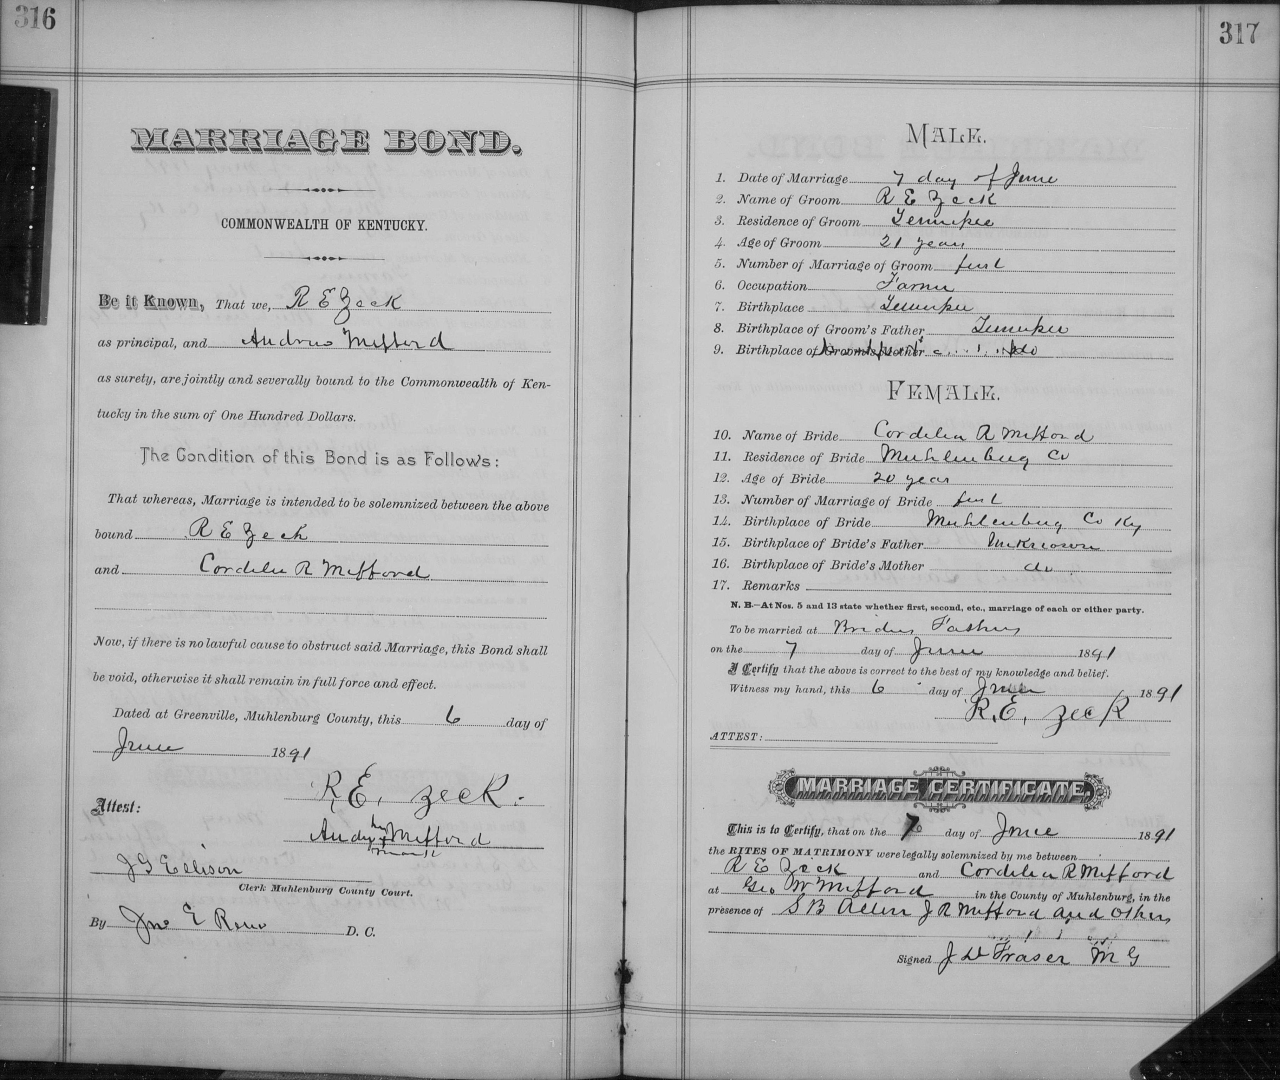 316
MARRIAGE BOND.
COMMONWEALTH OF KENTUCKY.
Be it Known, That we, R E Zeck
as principal, and Andrew Mefford
as surety, are jointly and severally bound to the Commonwealth of Ken-
tucky in the sum of One Hundred Dollars.
The Condition of this Bond is as Follows:
That whereas, Marriage is intended to be solemnized between the above
bound R E Zeck
and Cordelia R Mefford
Now, if there is no lawful cause to obstruct said Marriage, this Bond shall
be void, otherwise it shall remain in full force and effect.
Dated at Greenville, Muhlenburg County, this 6 day of
June 1891
R. E. Zeck.
Attest:
Andy his x mark Mefford
J G Ellison
Clerk Muhlenburg County Court.
By Jno E Reno D. C.
317
MALE.
1. Date of Marriage 7 day of June
2. Name of Groom R E Zeck
3. Residence of Groom Tennessee
4. Age of Groom 21 years
5. Number of Marriage of Groom first
6. Occupation Farmer
7. Birthplace Tennessee
8. Birthplace of Groom's Father Tennessee
9. Birthplace of Groom's Mother do
FEMALE.
10. Name of Bride Cordelia R Mefford
11. Residence of Bride Muhlenburg Co
12. Age of Bride 20 year
13. Number of Marriage of Bride first
14. Birthplace of Bride Muhlenburg Co Ky
15. Birthplace of Bride's Father Unknown
16. Birthplace of Bride's Mother do
17. Remarks
N. B.—At Nos. 5 and 13 state whether first, second, etc., marriage of each or either party.
To be married at Brides Fathers
on the 7 day of June 1891
I Certify that the above is correct to the best of my knowledge and belief.
Witness my hand, this 6 day of June 1891
R. E. Zeck
ATTEST:
MARRIAGE CERTIFICATE.
This is to Certify, that on the 7 day of June 1891
the RITES OF MATRIMONY were legally solemnized by me between
R E Zeck and Cordelia R Mefford
at Geo W Mefford in the County of Muhlenburg, in the
presence of S B Allen J R Mefford and Others
Signed J W Fraser M G